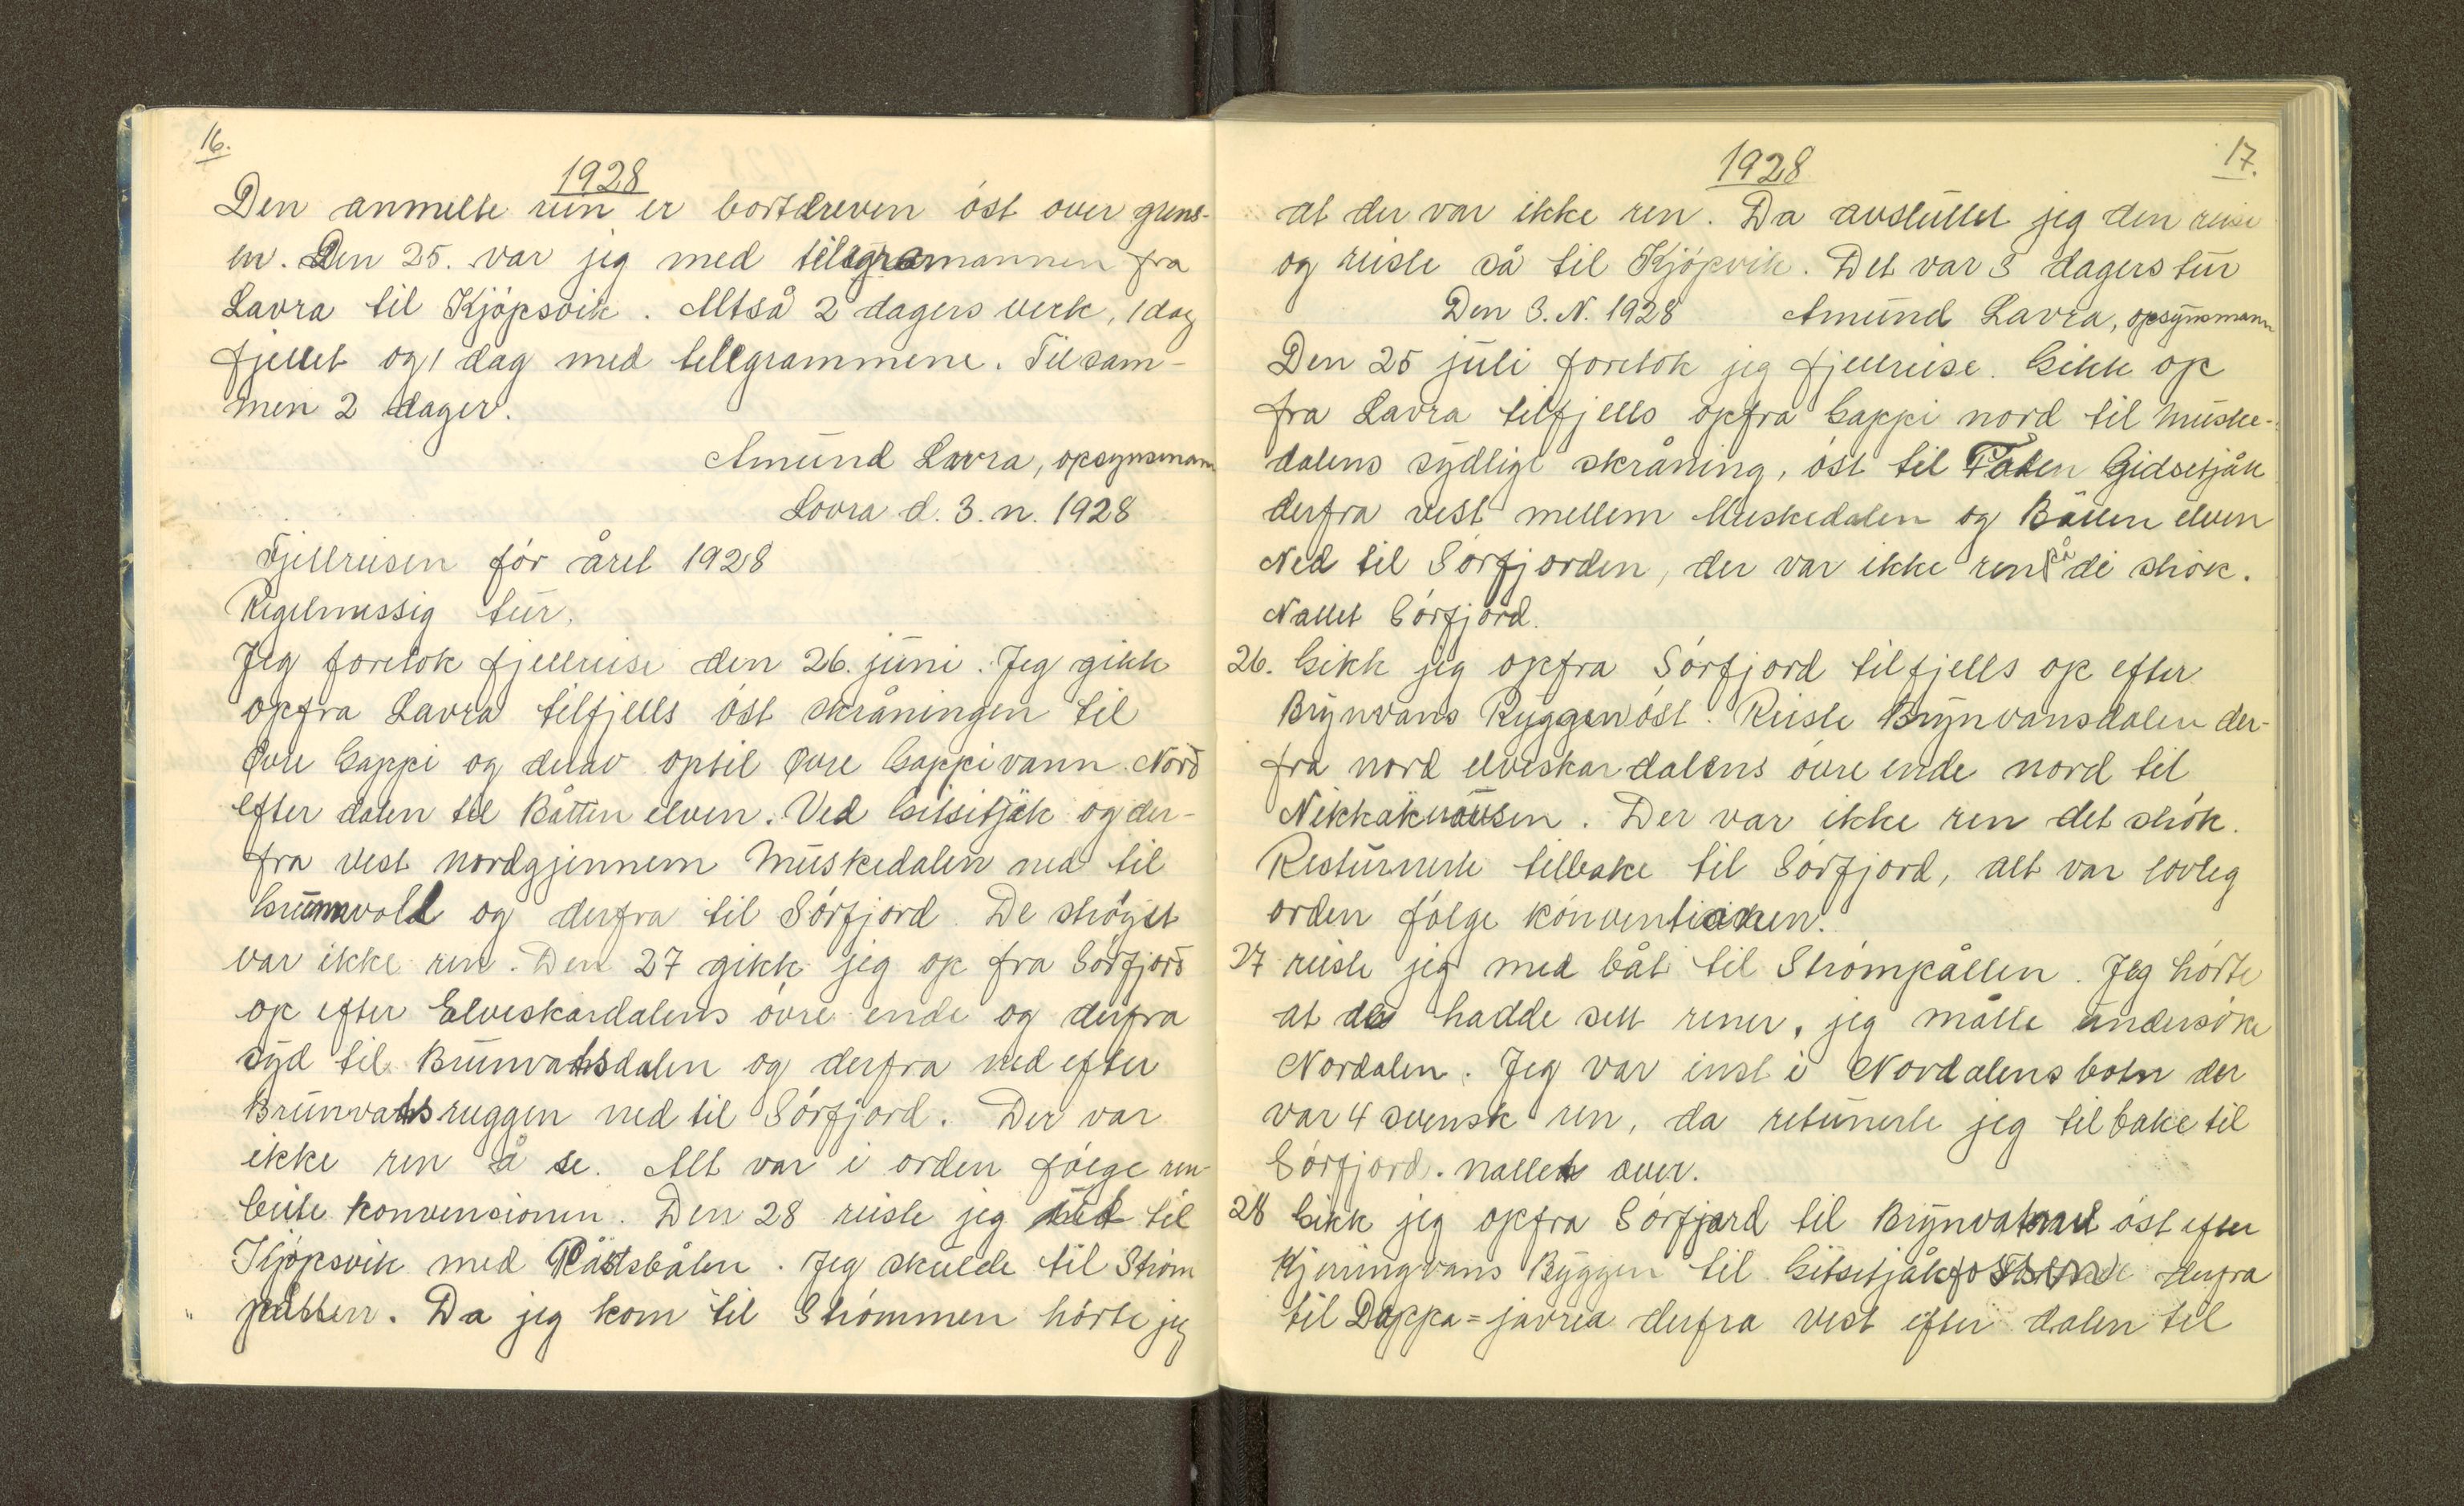 16.
1928
Den anmelte rein er bortdreven öst over grens-
en. Den 25. var jeg med telegramannen fra
Lavra til Kjöpsvik. Altså 2 dagers verk, 1 dag
fjellet og 1 dag med tellgrammene. Tilsam-
men 2 dager.
Amund Lavra, opsynsmann
Lovra d. 3. n. 1928
Fjellreisen för året 1928
Regelmessig tur.
Jeg foretok fjellreise den 26. juni. Jeg gikk
opfra Lavra tilfjells öst skråningen til
Övre Gappi og derav optil Övre Gappivann. Nord
efter dalen til Båtten elven. Ved Gitsitjåk og der-
fra vest nordgjennem Muskedalen ned til
Grunnvold og derfra til Sörfjord. De ströget
var ikke ren. Den 27 gikk jeg op fra Sörfjord
op efter Elveskardalens övre ende og derfra
syd til Brunvatsdalen og derfra ned efter
Brunvatsruggen ned til Sörfjord. Der var
ikke ren å se. Alt var i orden fölge ren-
beite konvensionen. Den 28 reiste jeg til
Kjöpsvik med Råstsbåten. Jeg skulde til Ström
påtten. Da jeg kom til Strömmen hörte jeg
17.
1928
at der var ikke ren. Da avsluttet jeg den reise
og reiste så til Kjöpvik. Det var 3 dagers tur
Den 3. N. 1928 Amund Lavra, opsynsmann
Den 25 juli foretok jeg fjellreise. Gikk op
fra Lavra tilfjells opfra Gappi nord til Muske-
dalens sydlige skråning, öst til Foten Gidsetjåk
derfra vest mellem Muskedalen og Båtten elven
Ned til Sörfjorden, der var ikke ren på di strök.
Nattet Sörfjord.
26. Gikk jeg opfra Sörfjord tilfjells op efter
Brynvans Ryggen öst. Reiste Brynvansdalen der-
fra nord elveskardalens övre ende nord til
Der var ikke ren det strök.
Resturnerte tilbake til Sörfjord, alt var lovleg
orden fölge könventionen.
27 reiste jeg med båt til Strömpåtten. Jeg hörte
at de hadde sett rener, jeg måtte undersöke
Nordalen. Jeg var inst i Nordalens botn der
var 4 svensk ren, da returnerte jeg tilbake til
Sörfjord. nattet over.
28 Gikk jeg opfra Sörfjord til Brynvatnet öst efter
Kjerringvans Ryggen til derfra
til Doppa=javrra derfra vest efter dalen til